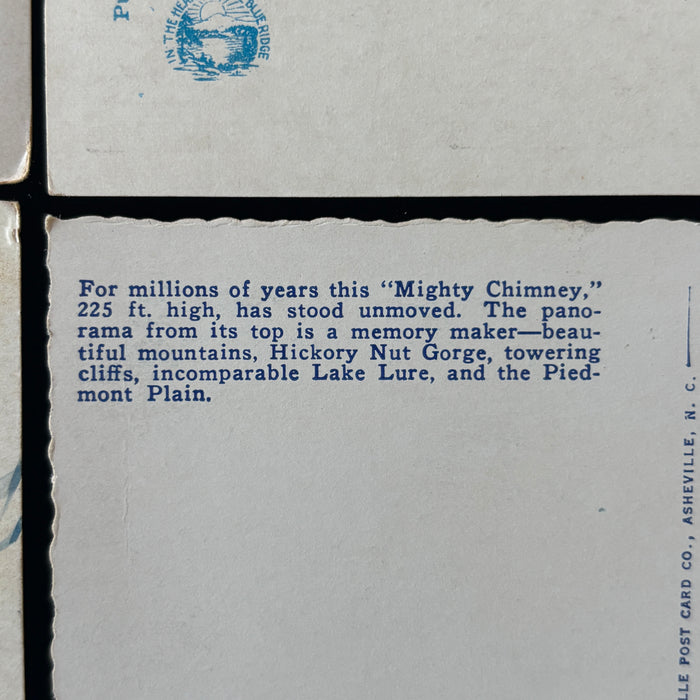 IN THE HEA
BLUE RIDGE
For millions of years this “Mighty Chimney,”
225 ft. high, has stood unmoved. The pano-
rama from its top is a memory maker—beau-
tiful mountains, Hickory Nut Gorge, towering
cliffs, incomparable Lake Lure, and the Pied-
mont Plain.
LLE POST CARD CO., ASHEVILLE, N. C.